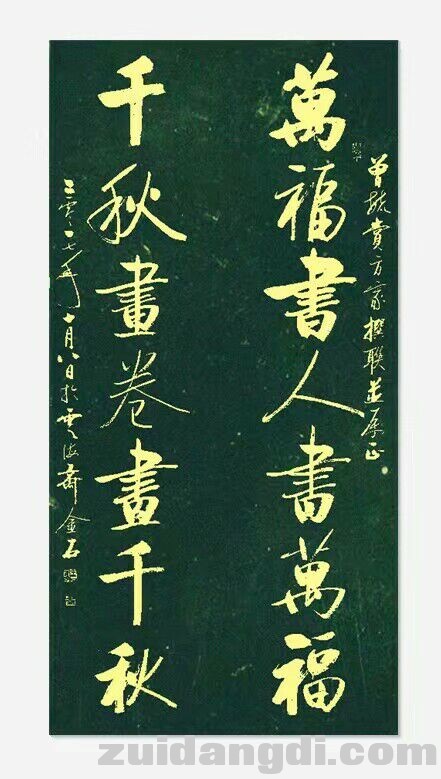 萬福書人書萬福
方家撰聯並
千秋畫卷畫千秋
二零一七年十月八日於雲海齋金石
zuidangdi.com